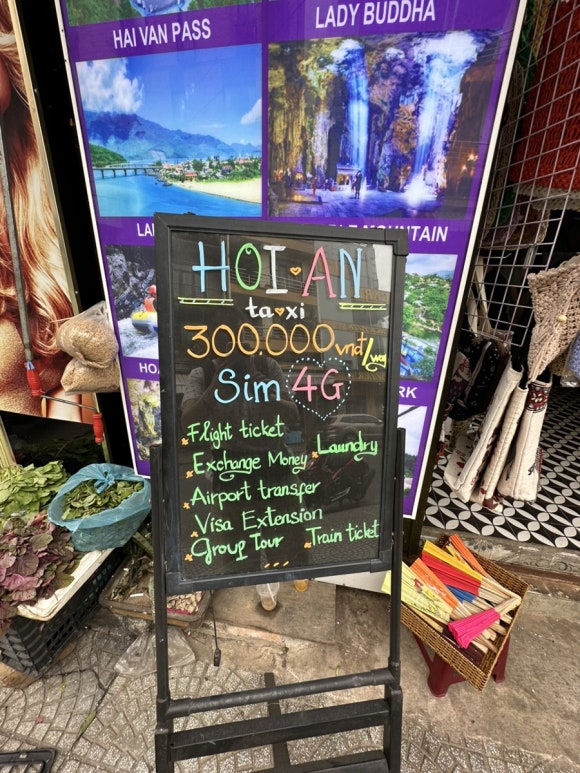 HAI VAN PASS
LADY BUDDHA
MOUNTAIN
HOI AN
taxi
300.000vnđ/way
Sim 4G
Flight ticket
Laundry
Exchange Money
Airport transfer
Visa Extension
Group Tour
Train ticket